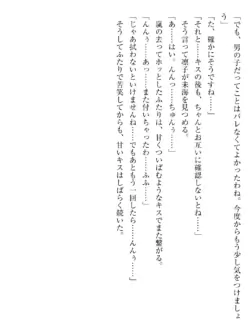 「でも、男の子だってことはバレなくてよかったわね。今度からもう少し気をつけましょ
う」
「た、確かにそうですね」
「それと……キスの後も、ちゃんとお互いに確認しないとね……」
そう言って凛子が未海を見つめる。
「あ……はい。んんっ……ちゅんぅ……」
嵐の去ってホッとしたふたりは、甘くついばむようなキスでまた繋がる。
「んんぅ……あっ……また付いちゃったわ……ふふ……」
「じゃあ拭わないといけませんね……でもあともう一回したら……んんぅ……」
そうしてふたりで苦笑してからも、甘いキスはしばらく続いた。